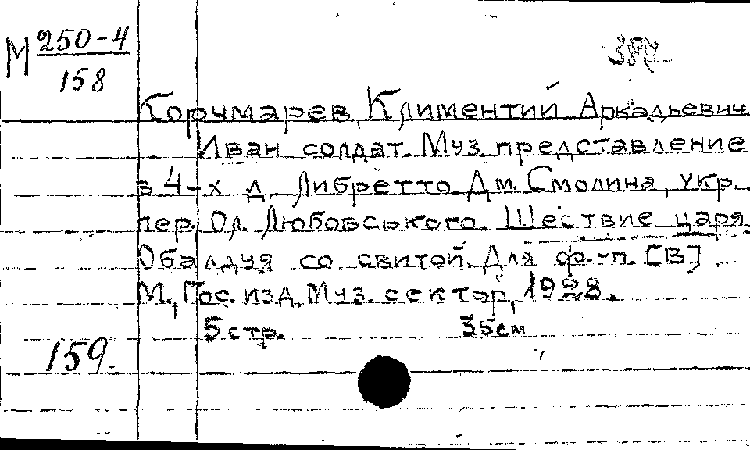 М 250-4
158
Корчмарев, Климентий Аркадьевич
Иван солдат. Муз. представление
в 4-х д. Либретто Дм. Смолина, укр.
пер. Ол. Любовського. Шествие царя
Обалдуя со свитой. Для ф.-п. [В]
М., Гос. изд. Муз. сектор, 1928.
5 стр. 35 см
159.